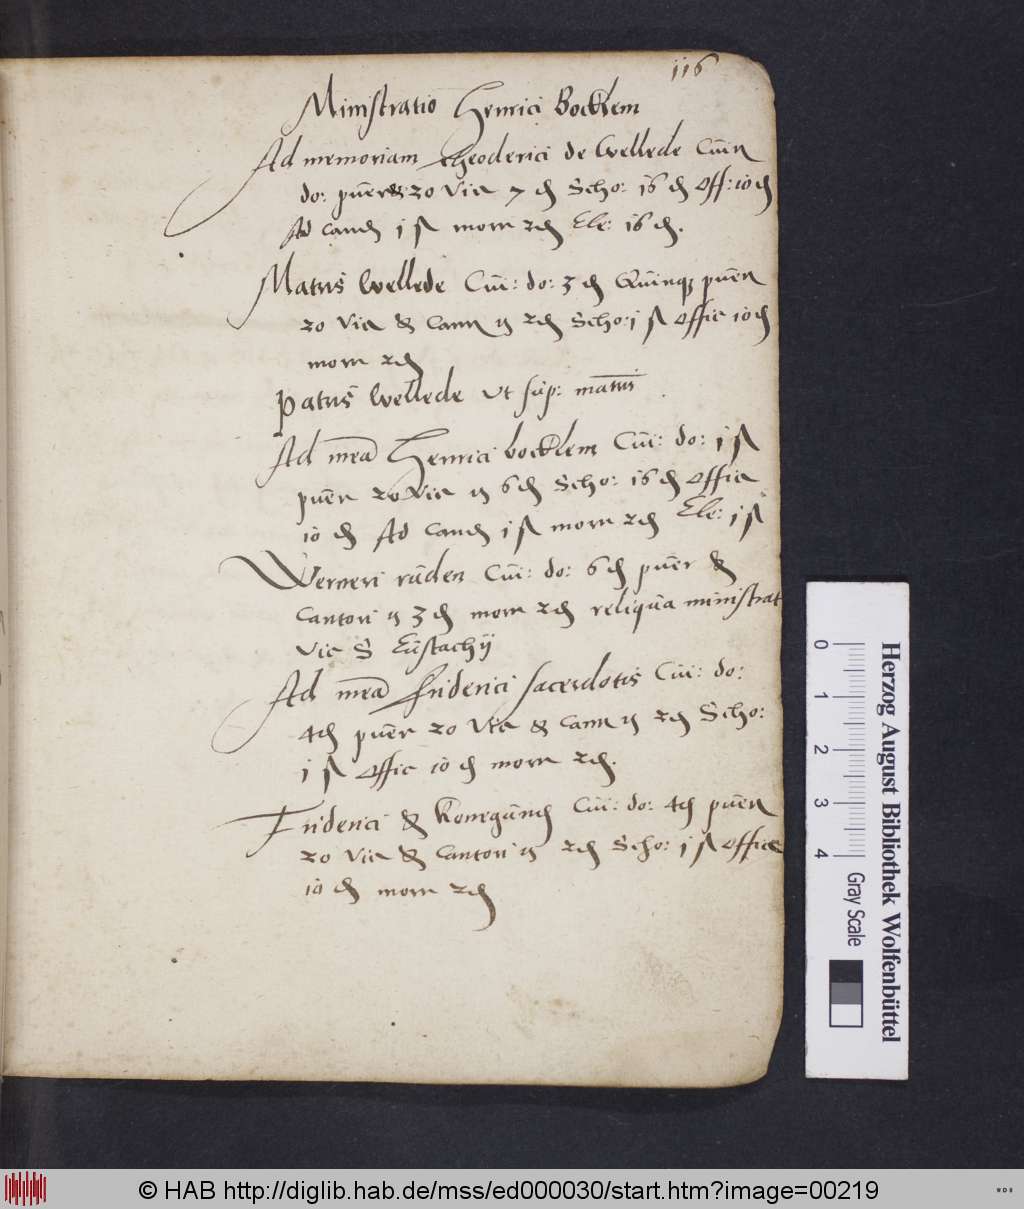 116
Ministratio Henrici Bocklem
Ad memoriam theoderici de Wellede Cuīn
do: puēr & ro Vic 7 ₰ Scho: 16 ₰ Off: 10 ₰
Ad cand 1 ß morn 2 ₰ Ele: 16 ₰.
Matris Wellede Cuī: do: 3 ₰ Quinq puēr
ro Vic & Camr 2 ₰ Scho: 1 ß Offic 10 ₰
morn 2 ₰
Patris Wellede Ut sup: matris
Ad mēa Henrici bocklem Cuī: do: 1 ß
puēr ro Vic 6 ₰ Scho: 16 ₰ Offic
10 ₰ Ad cand 1 ß morn 2 ₰ Ele: 1 ß
Werneri ruden Cuī: do: 6 ₰ puēr &
Cantori 3 ₰ morn 2 ₰ reliqua ministrat
Vic S Eustachij
Ad mēa friderici sacerdotis Cuī: do:
4 ₰ puēr ro Vic & Camr 2 ₰ Scho:
1 ß Offic 10 ₰ morn 2 ₰.
Friderici & Konegund Cuī: do: 4 ₰ puēr
ro Vic & Cantori 2 ₰ Scho: 1 ß Offic
10 ₰ morn 2 ₰
Herzog August Bibliothek Wolfenbüttel
0 1 2 3 4 Gray Scale
© HAB http://diglib.hab.de/mss/ed000030/start.htm?image=00219